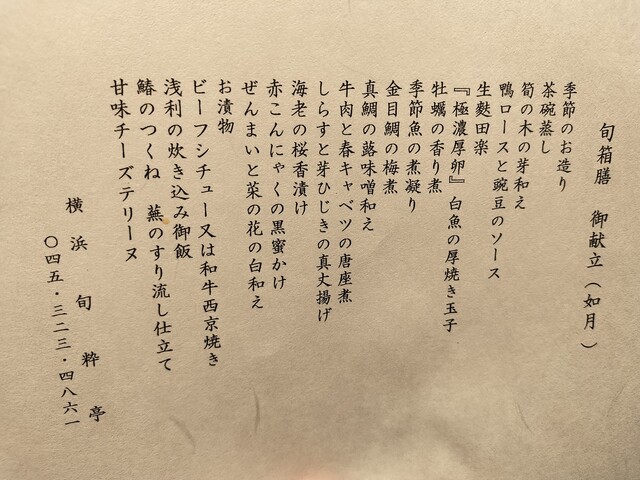 旬箱膳　御献立（如月）
季節のお造り
茶碗蒸し
筍の木の芽和え
鴨ロースと豌豆のソース
生麩田楽
『極濃厚卵』白魚の厚焼き玉子
牡蠣の香り煮
季節魚の煮凝り
金目鯛の梅煮
真鯛の蕗味噌和え
牛肉と春キャベツの唐座煮
しらすと芽ひじきの真丈揚げ
海老の桜香漬け
赤こんにゃくの黒蜜かけ
ぜんまいと菜の花の白和え
お漬物
ビーフシチュー又は和牛西京焼き
浅利の炊き込み御飯
鰆のつくね　蕪のすり流し仕立て
甘味チーズテリーヌ
横浜旬粋亭
〇四五・三二三・四八六一